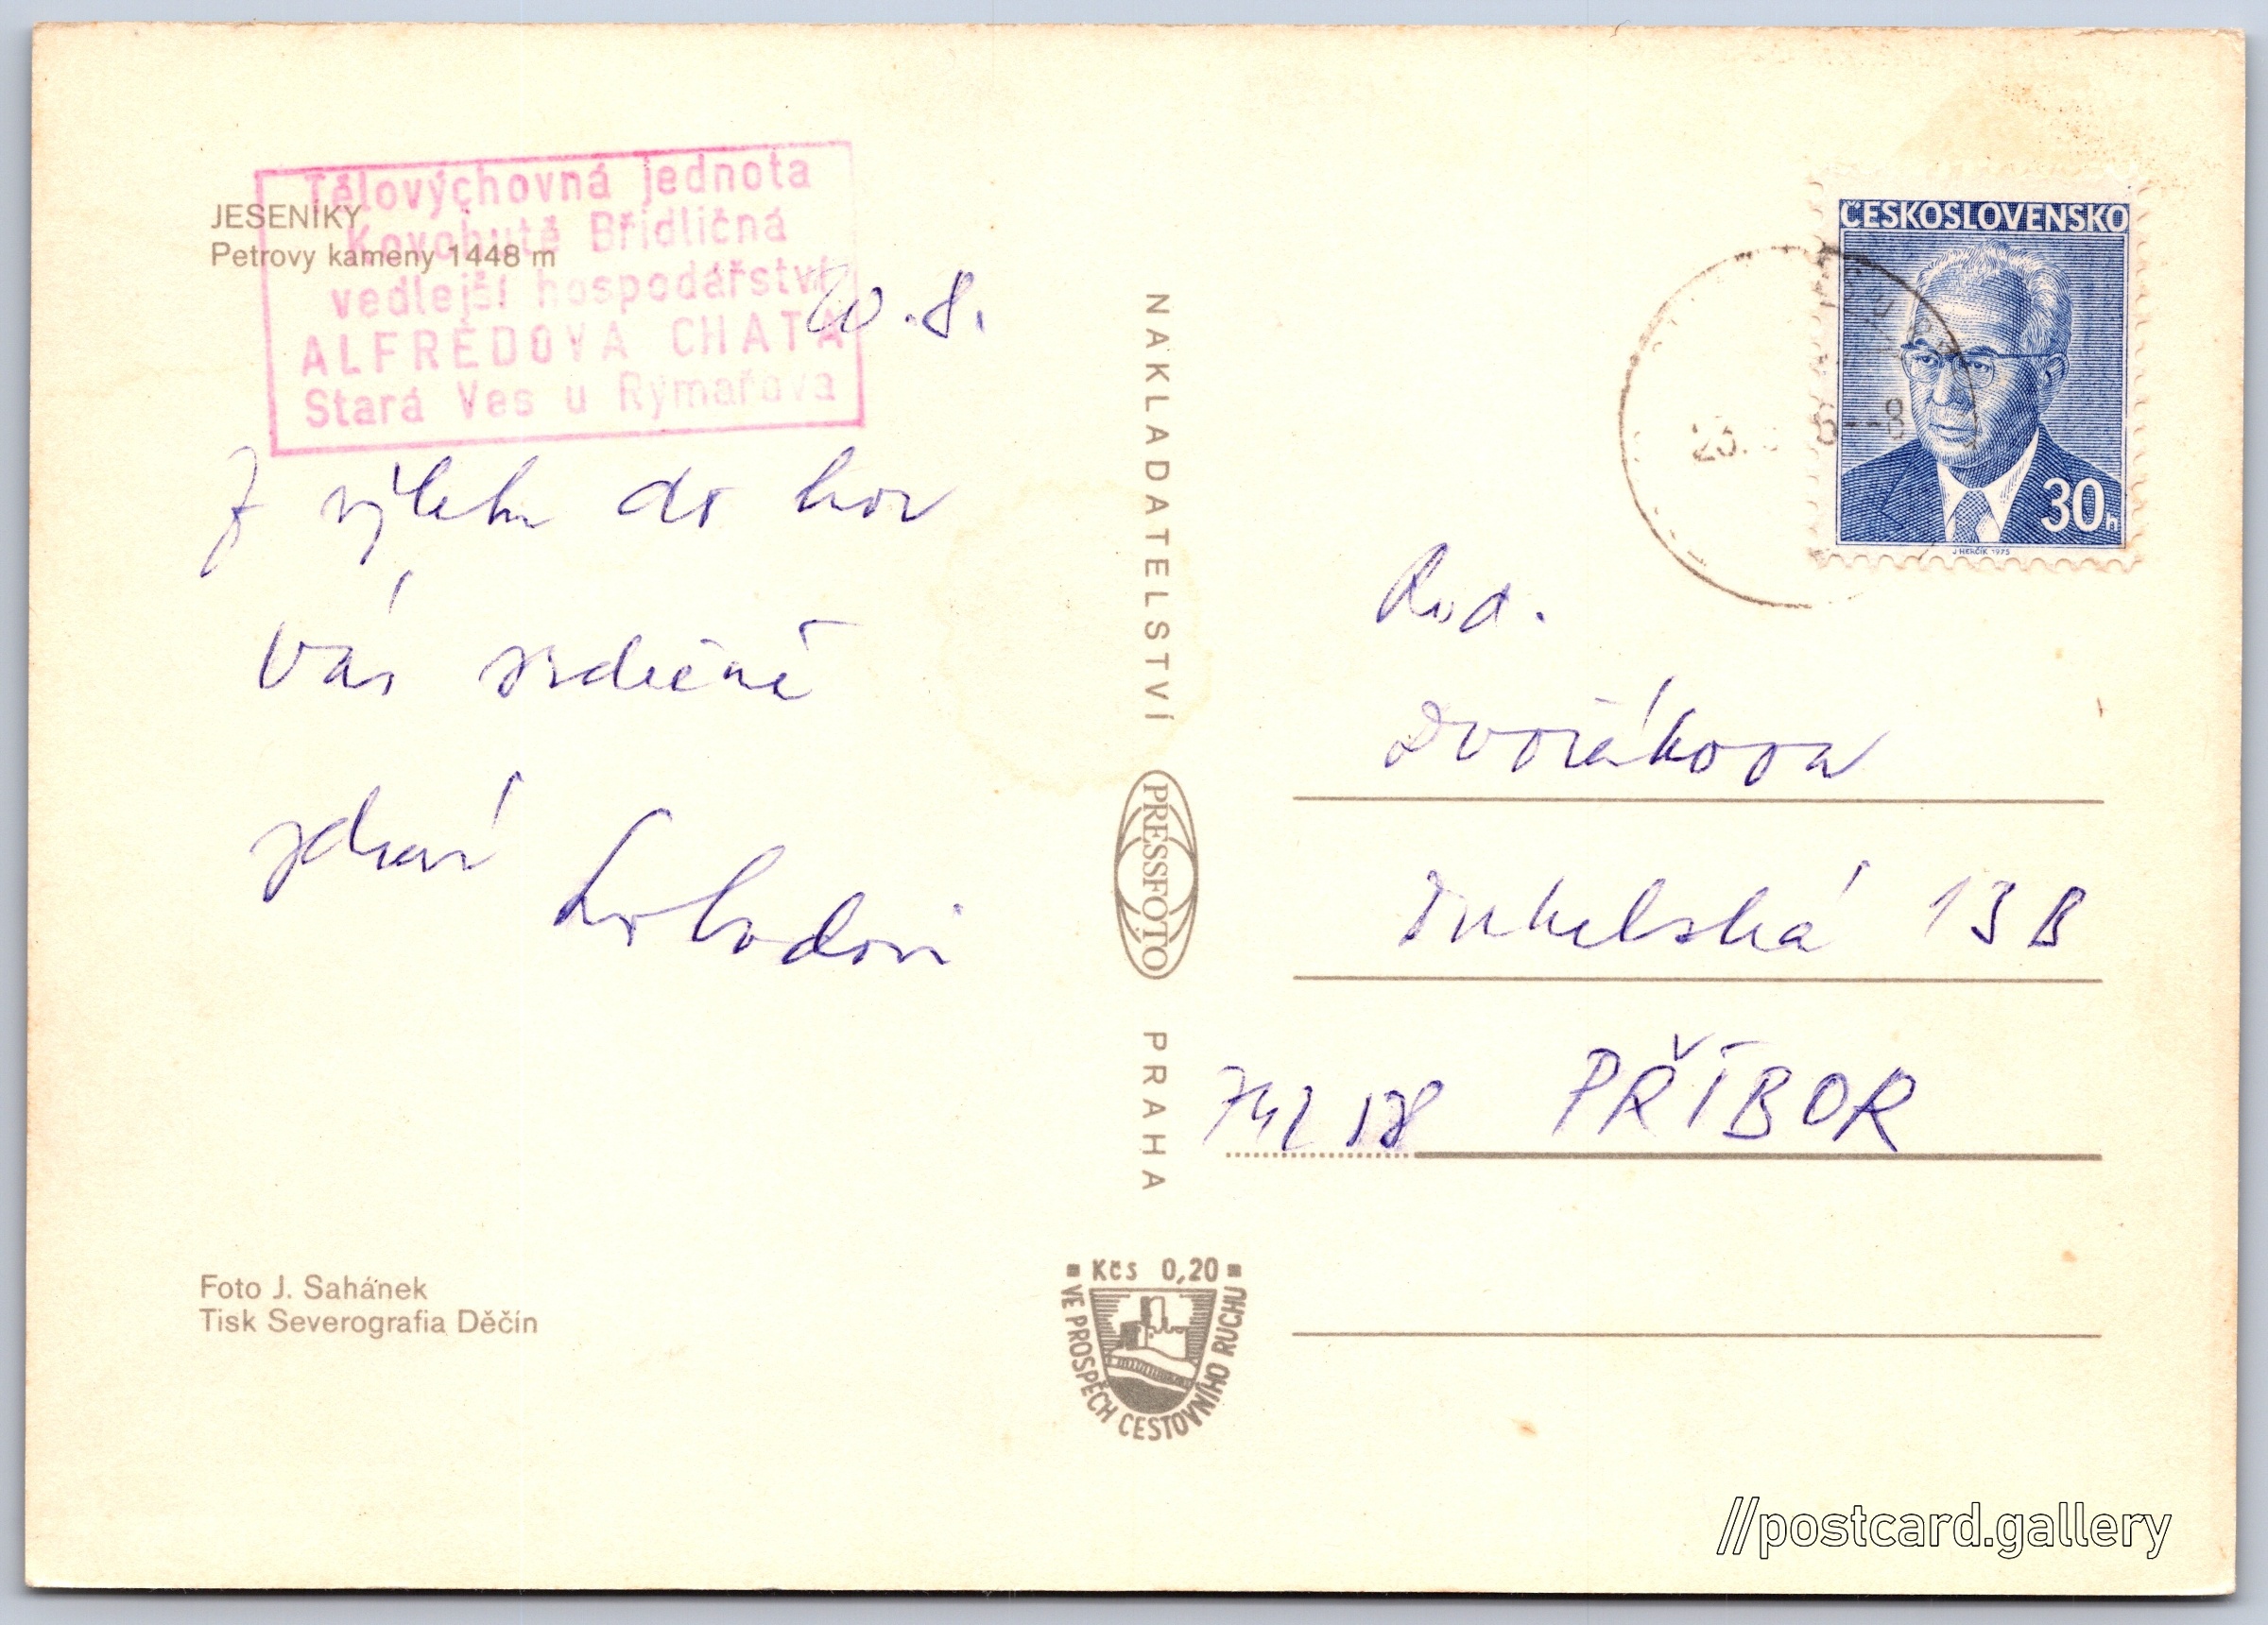 JESENÍKY
Petrovy kameny 1448 m
Tělovýchovná jednota
Kovohutě Břidličná
vedlejší hospodářství
ALFRÉDOVA CHATA
Stará Ves u Rýmařova
20.8.
Z výletu do hor
Vás srdečně
zdraví
Foto J. Sahánek
Tisk Severografia Děčín
NAKLADATELSTVÍ PRESSFOTO PRAHA
Kčs 0,20
VE PROSPĚCH CESTOVNÍHO RUCHU
ČESKOSLOVENSKO
30h
J. HERČÍK 1975
Rod.
Dvořákova
Dukelská 13 B
742 58 PŘÍBOR
//postcard.gallery